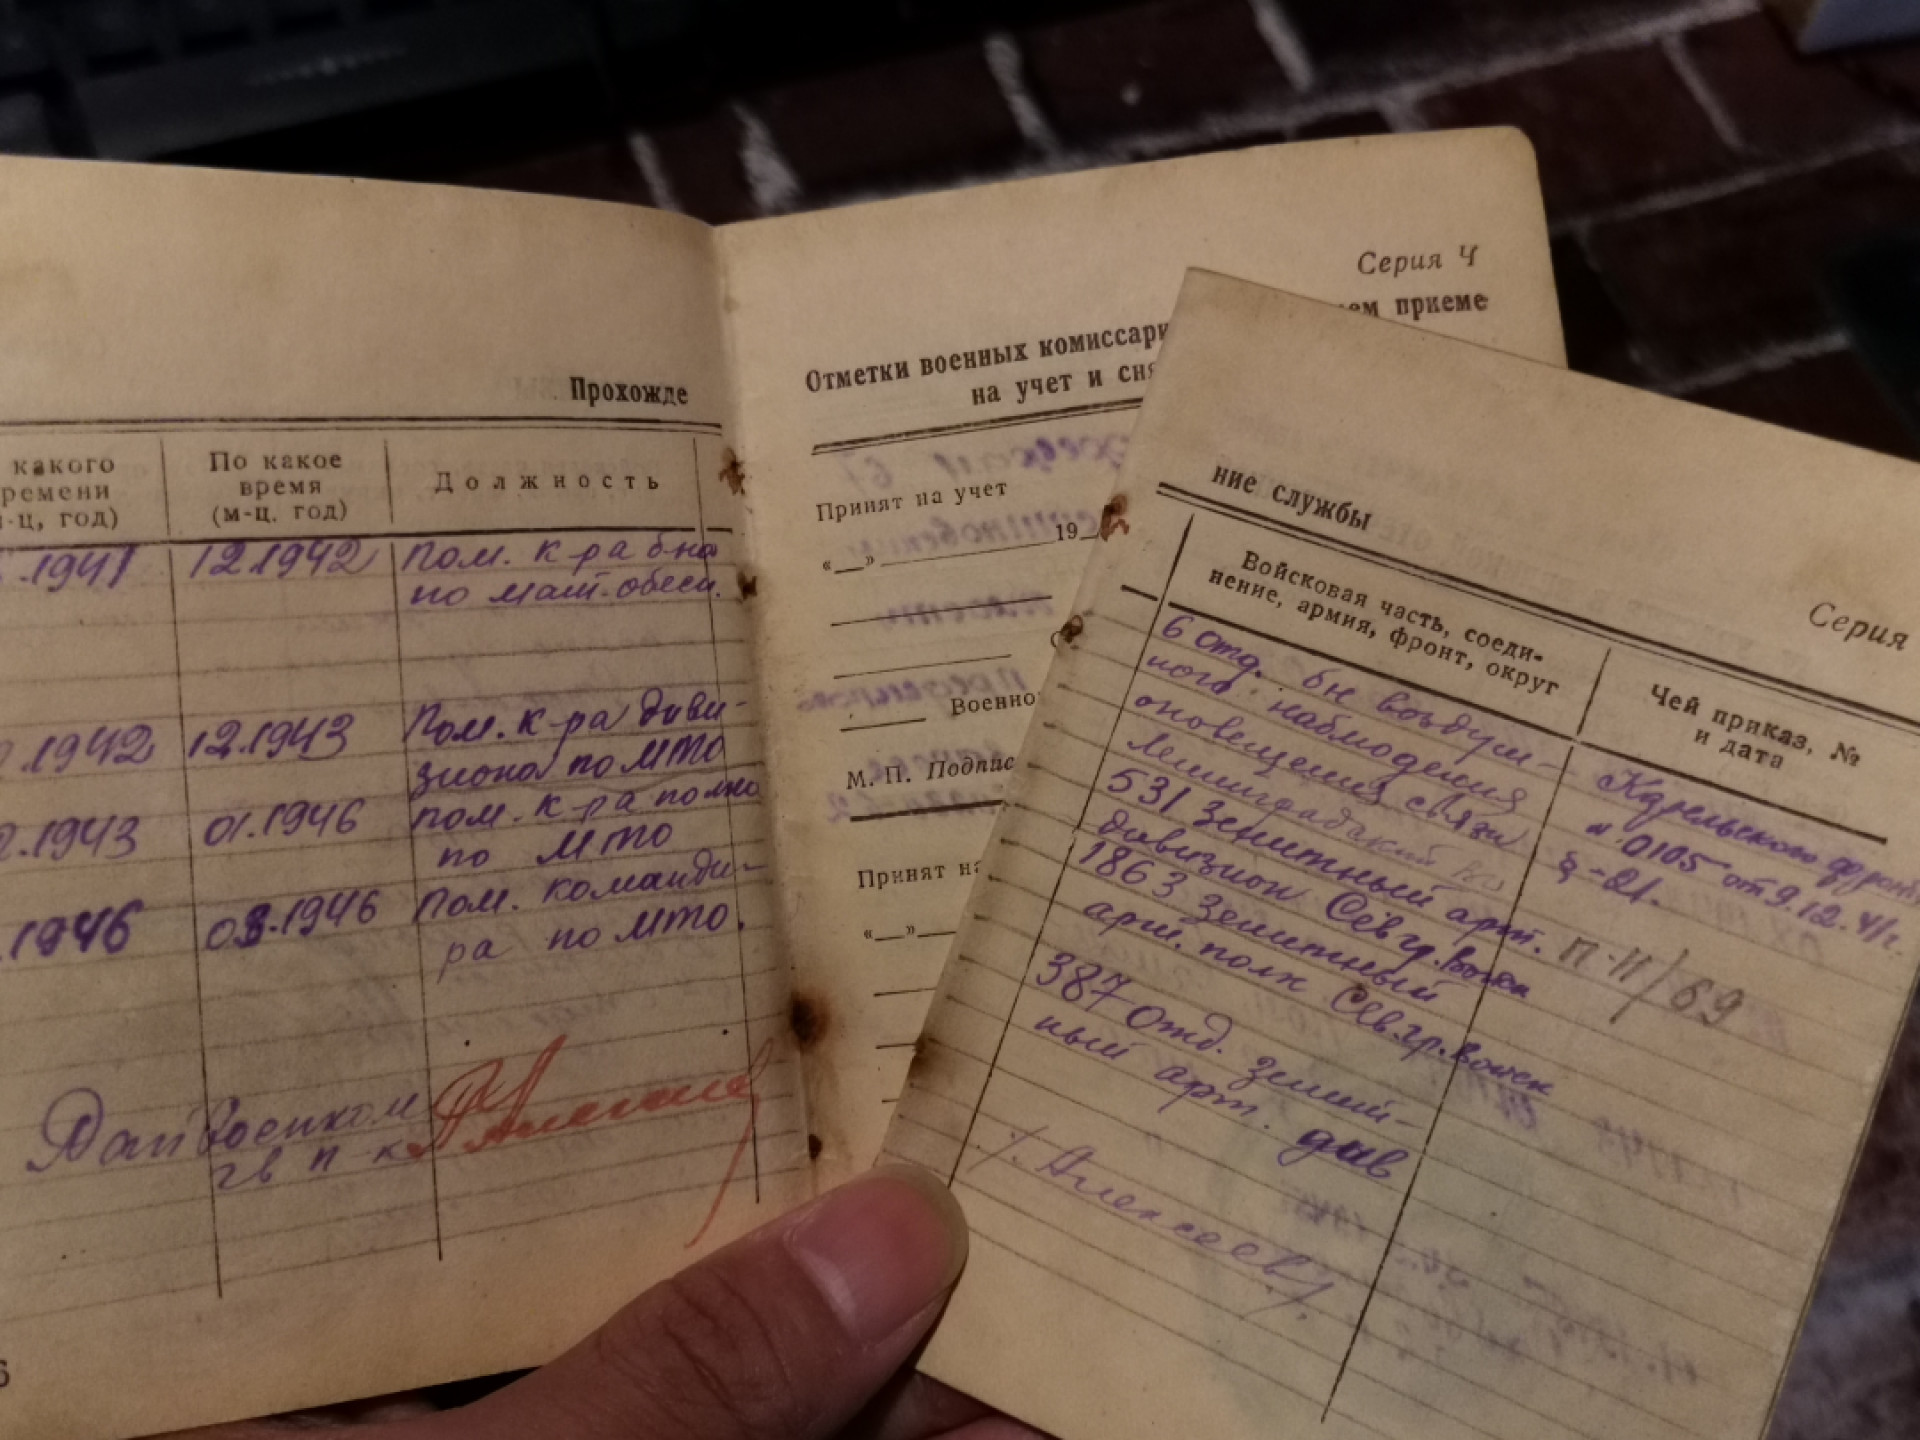 Прохожде
какого
ремени
-ц, год)
По какое
время
(м-ц. год)
Должность
.1941
12.1942
Пом. к-ра б-на
по мат. обесп.
.1942
12.1943
Пом. к-ра диви-
зиона по МТО
.1943
01.1946
пом. к-ра полка
по МТО
.1946
03.1946
Пом. команди-
ра по МТО.
Райвоенком
гв п-к
6
Серия Ч
Отметки военных комиссари
ем приеме
на учет и сня
Принят на учет
«__»
19
Военно
М. П. Подпис
Принят на
«__»
ние службы
Серия
Войсковая часть, соеди-
нение, армия, фронт, округ
Чей приказ, №
и дата
6 отд. бн воздуш-
ного наблюдения
оповещения связи
Ленинградский
531 Зенитный арт.
дивизион Сев гр. Войск
1863 Зенитный
арт. полк Сев.гр. войск
387 Отд. зенит-
ный арт. див
Карельского фронта
0105 от 9.12.41г.
§-21.
П-11/69
/. Алексеев/